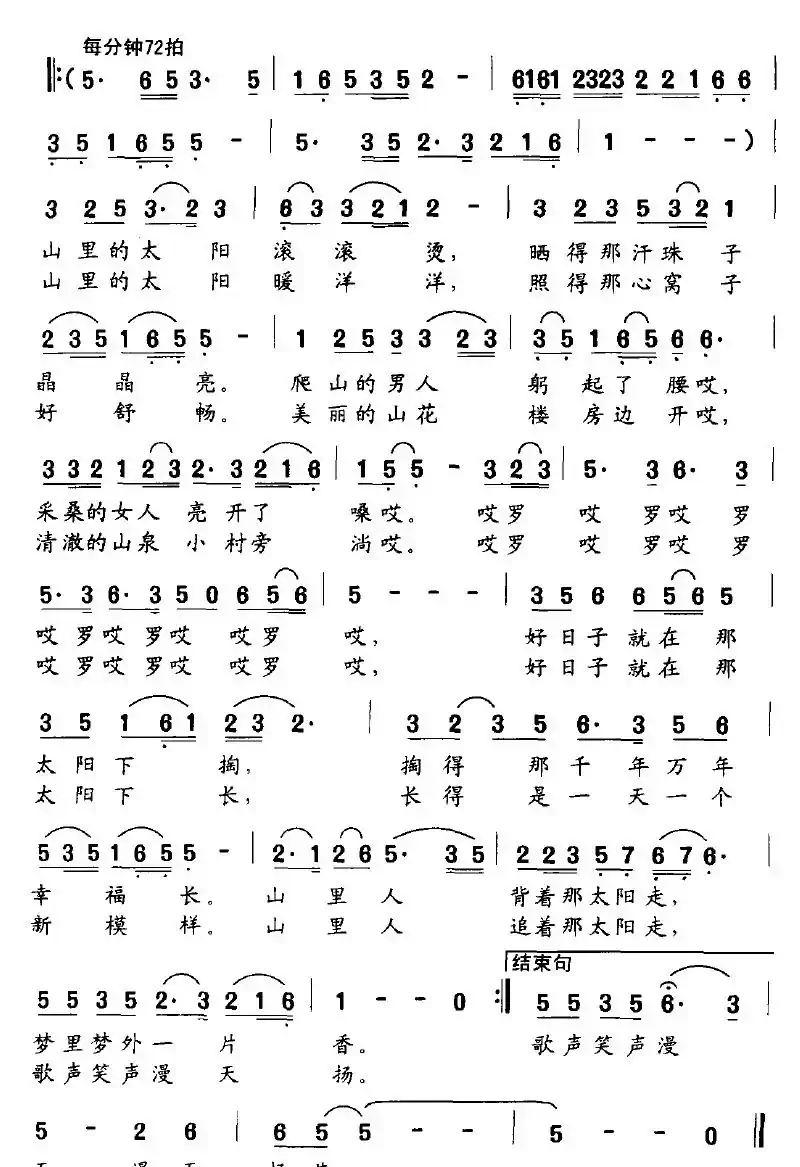 每分钟72拍
‖:(5· 653· 5 | 165352 - | 61612323 22166
351655 - | 5· 352·3216 | 1 - - - )|
3 253·23 | 633212 - | 3 235321 |
山里的太 阳 滚 滚 烫, 晒得那汗珠 子
山里的太 阳 暖 洋 洋, 照得那心窝 子
2351655 - | 1 2533 23 | 3516566· |
晶 晶 亮。 爬山的男人 躬 起了 腰哎,
好 舒 畅。 美丽的山花 楼 房边 开哎,
33212·32·3216 | 155 - 323 | 5· 36· 3 |
采桑的女人 亮 开了 嗓哎。 哎罗 哎 罗哎 罗
清澈的山泉 小 村旁 淌哎。 哎罗 哎 罗哎 罗
5·36·350656 | 5 - - - | 356 6565 |
哎罗哎 罗哎 哎罗 哎, 好日子 就在 那
哎罗哎 罗哎 哎罗 哎, 好日子 就在 那
3 5 161 232· | 3 235 6·356 |
太 阳 下 掏, 掏得 那千 年万年
太 阳 下 长, 长得 是一 天一个
5351655 - | 2·1265· 35 | 22357676· |
幸 福 长。 山 里 人 背着那太阳走,
新 模 样。 山 里 人 追着那太阳走,
55352·3216 | 1 - - 0 :‖ 55356· 3 |
结束句
梦里梦外一 片 香。 歌声笑声漫
歌声笑声漫 天 扬。
5 - 2 6 | 655 - - | 5 - - 0 ‖